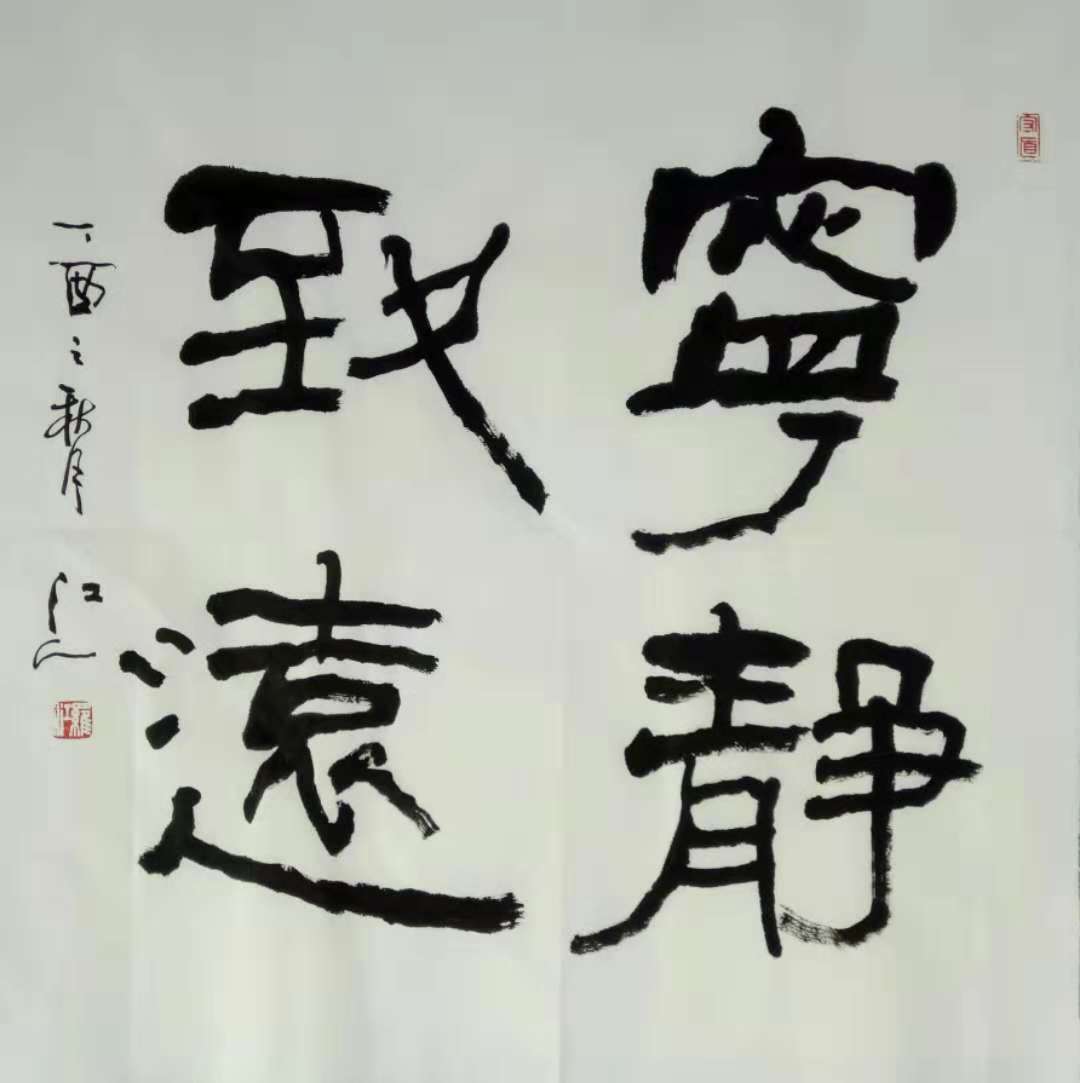 寧靜
致遠
丁酉之秋月 江山